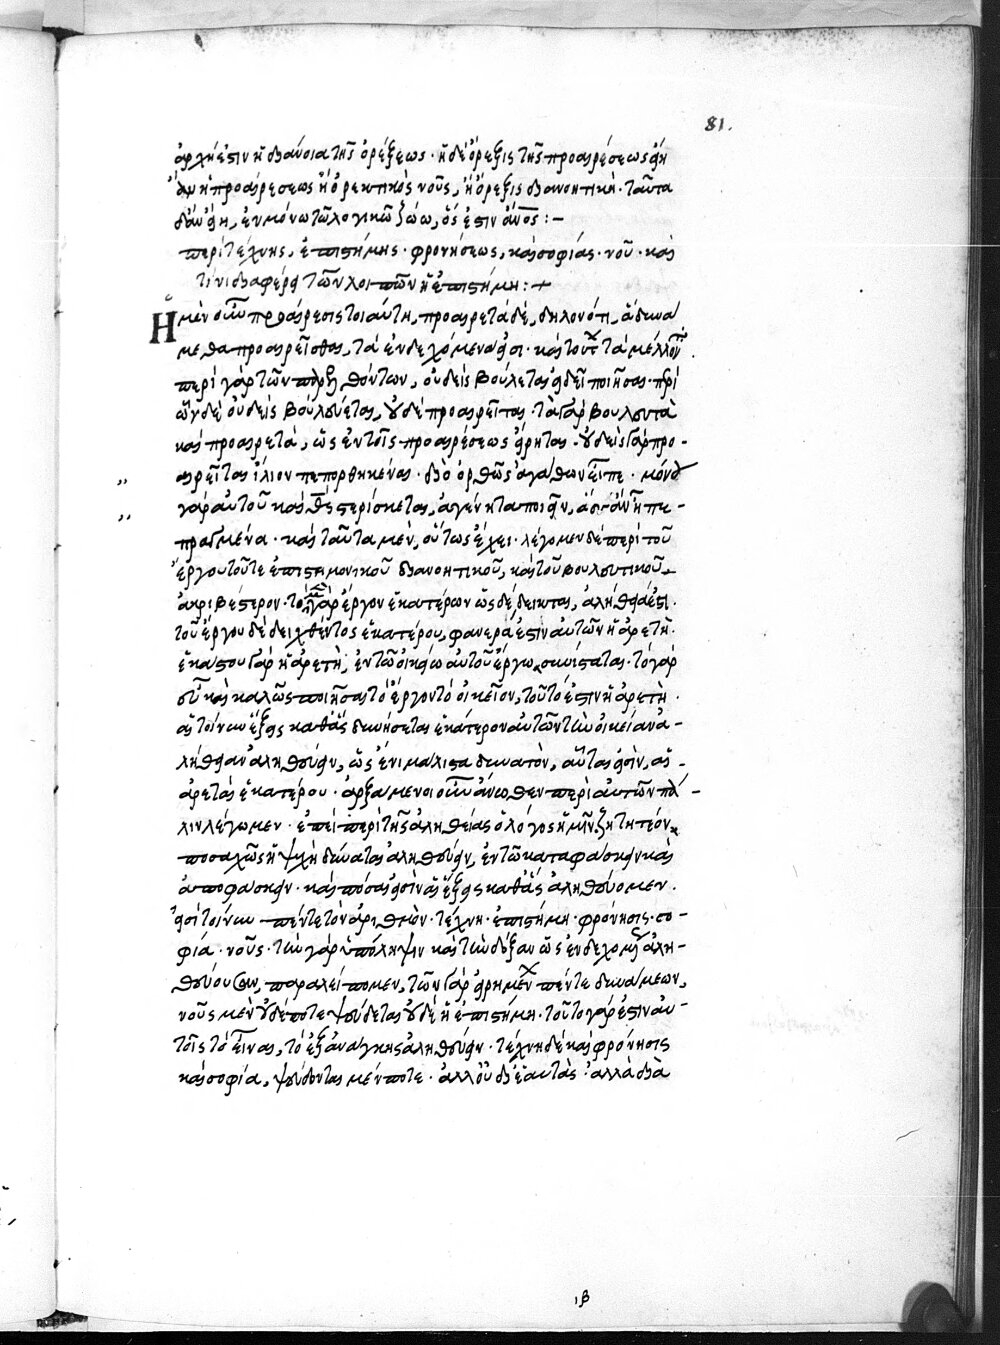 81.
ἀρχή ἐστιν ἡ διάνοια τῆς ὀρέξεως· ἡ δὲ ὄρεξις τῆς προαιρέσεως· εἴη
ἂν ἡ προαίρεσις ἢ ὀρεκτικὸς νοῦς, ἢ ὄρεξις διανοητική· ταῦτα
δ' ἂν εἴη, ἐν μόνω τῶ λογικῶ ζώω, ὅς ἐστιν ἄνος:–
περὶ τέχνης, ἐπιστήμης· φρονήσεως, καὶ σοφίας· νοῦ· καὶ
τίνι διαφέρει τῶν λοιπῶν ἡ ἐπιστήμη:+
Ἡ μὲν οὖν προαίρεσις τοιαύτη, προαιρετὰ δὲ, δηλονότι, ἃ δυνά
μεθα προαιρεῖσθαι, τὰ ἐνδεχόμενά εἰσι· καὶ τούτων τὰ μέλλοντα.
περὶ γὰρ τῶν παρελθόντων, οὐδεὶς βούλεται εἰ δεῖ ποιῆσαι· περὶ
ὧν δὲ οὐδεὶς βουλεύεται, οὐδὲ προαιρεῖται· τὰ γὰρ βουλευτὰ
καὶ προαιρετά, ὡς ἐν τοῖς προαιρέσεως εἴρηται· οὐδεὶς γὰρ προ-
αιρεῖται ἴλιον πεπορθηκέναι· διὸ ὀρθῶς ἀγάθων εἶπε· μόνου
γὰρ αὐτοῦ καὶ θεὸς στερίσκεται, ἀγένητα ποιεῖν, ἅσσ' ἂν ᾖ πε-
πραγμένα· καὶ ταῦτα μὲν, οὕτως ἔχει· λέγομεν δὲ περὶ τοῦ
ἔργου τοῦ τε ἐπιστημονικοῦ διανοητικοῦ, καὶ τοῦ βουλευτικοῦ
ἀκριβέστερον· τὸ γὰρ ἔργον ἑκατέρων ὡς δέδεικται, ἀλήθειά ἐστι.
τοῦ ἔργου δὲ δειχθέντος ἑκατέρου, φανερά ἐστιν αὐτῶν ἡ ἀρετή.
ἑκάστου γὰρ ἡ ἀρετὴ, ἐν τῶ οἰκείω αὐτοῦ ἔργω συνίσταται· τὸ γὰρ
εὖ καὶ καλῶς ποιῆσαι τὸ ἔργον τὸ οἰκεῖον, τοῦτό ἐστιν ἡ ἀρετή.
αἱ τοίνυν ἕξεις καθ' ἃς δυνήσεται ἑκάτερον αὐτῶν τὴν οἰκείαν ἀ-
λήθειαν ἀληθεύειν, ὡς ἔνι μάλιστα δυνατὸν, αὗταί εἰσιν, αἱ
ἀρεταὶ ἑκατέρου· ἀρξάμενοι οὖν ἄνωθεν περὶ αὐτῶν πά-
λιν λέγωμεν· ἐπεὶ περὶ τῆς ἀληθείας ὁ λόγος ἡμῖν, ζητητέον
ποσαχῶς ἡ ψυχὴ δύναται ἀληθεύειν, ἐν τῶ καταφάσκειν καὶ
ἀποφάσκειν· καὶ πόσαι εἰσὶν αἱ ἕξεις καθ' ἃς ἀληθεύομεν.
εἰσὶ τοίνυν πέντε τὸν ἀριθμόν· τέχνη· ἐπιστήμη· φρόνησις· σο-
φία· νοῦς· τὴν γὰρ ὑπόληψιν καὶ τὴν δόξαν ὡς ἐνδεχομένως ἀλη-
θευούσαν, παραλείπομεν, τῶν γὰρ εἰρημένων πέντε δυνάμεων,
νοῦς μὲν οὐδέποτε ψεύδεται οὐδὲ ἡ ἐπιστήμη· τοῦτο γάρ ἐστιν αὐ
τοῖς τὸ εἶναι, τὸ ἐξ ἀνάγκης ἀληθεύειν· τέχνη δὲ καὶ φρόνησις
καὶ σοφία, ψεύδονται μέν ποτε· ἀλλ' οὐ δι' ἑαυτὰς· ἀλλὰ διὰ
ιβ